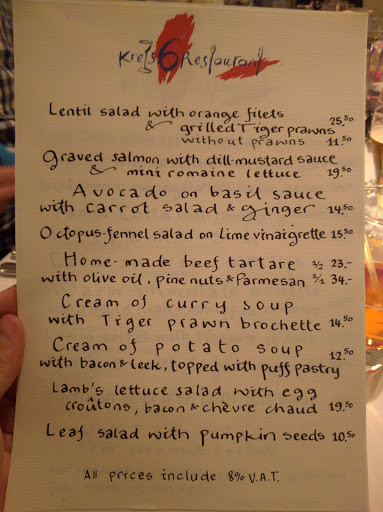 Kreis 6 Restaurant
Lentil salad with orange filets
& grilled Tiger prawns 25.50
without prawns 11.50
Graved salmon with dill-mustard sauce
& mini romaine lettuce 19.50
Avocado on basil sauce
with carrot salad & ginger 14.50
Octopus-fennel salad on Lime vinaigrette 15.50
Home-made beef tartare 1/2 23.-
with olive oil, pine nuts & Parmesan 1/1 34.-
Cream of curry soup
with Tiger prawn brochette 14.50
Cream of potato soup 12.50
with bacon & leek, topped with puff pastry
Lamb's lettuce salad with egg
croûtons, bacon & chèvre chaud 19.50
Leaf salad with pumpkin seeds 10.50
All prices include 8% V.A.T.